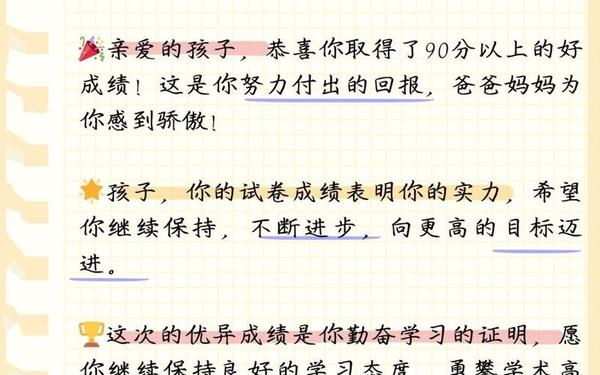 🎉亲爱的孩子，恭喜你取得了90分以上的好
成绩！这是你努力付出的回报，爸爸妈妈为
你感到骄傲！
⭐孩子，你的试卷成绩表明你的实力，希望
你继续保持，不断进步，向更高的目标迈
进。
🏆这次的优异成绩是你勤奋学习的证明，愿
你继续保持良好的学习态度，勇攀学术高